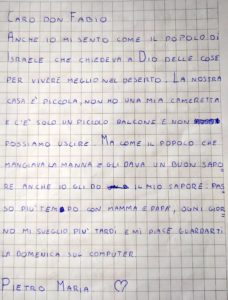 CARO DON FABIO
ANCHE IO MI SENTO COME IL POPOLO DI
ISRAELE CHE CHIEDEVA A DIO DELLE COSE
PER VIVERE MEGLIO NEL DESERTO. LA NOSTRA
CASA È PICCOLA, NON HO UNA MIA CAMERETTA
E C'È SOLO UN PICCOLO BALCONE E NON
POSSIAMO USCIRE. MA COME IL POPOLO CHE
MANGIAVA LA MANNA E GLI DAVA UN BUON SAPO
RE ANCHE IO GLI DO IL MIO SAPORE. PAS
SO PIÙ TEMPO CON MAMMA E PAPÀ, OGNI GIOR
NO MI SVEGLIO PIÙ TARDI E MI PIACE GUARDARTI
LA DOMENICA SUL COMPUTER
PIETRO MARIA